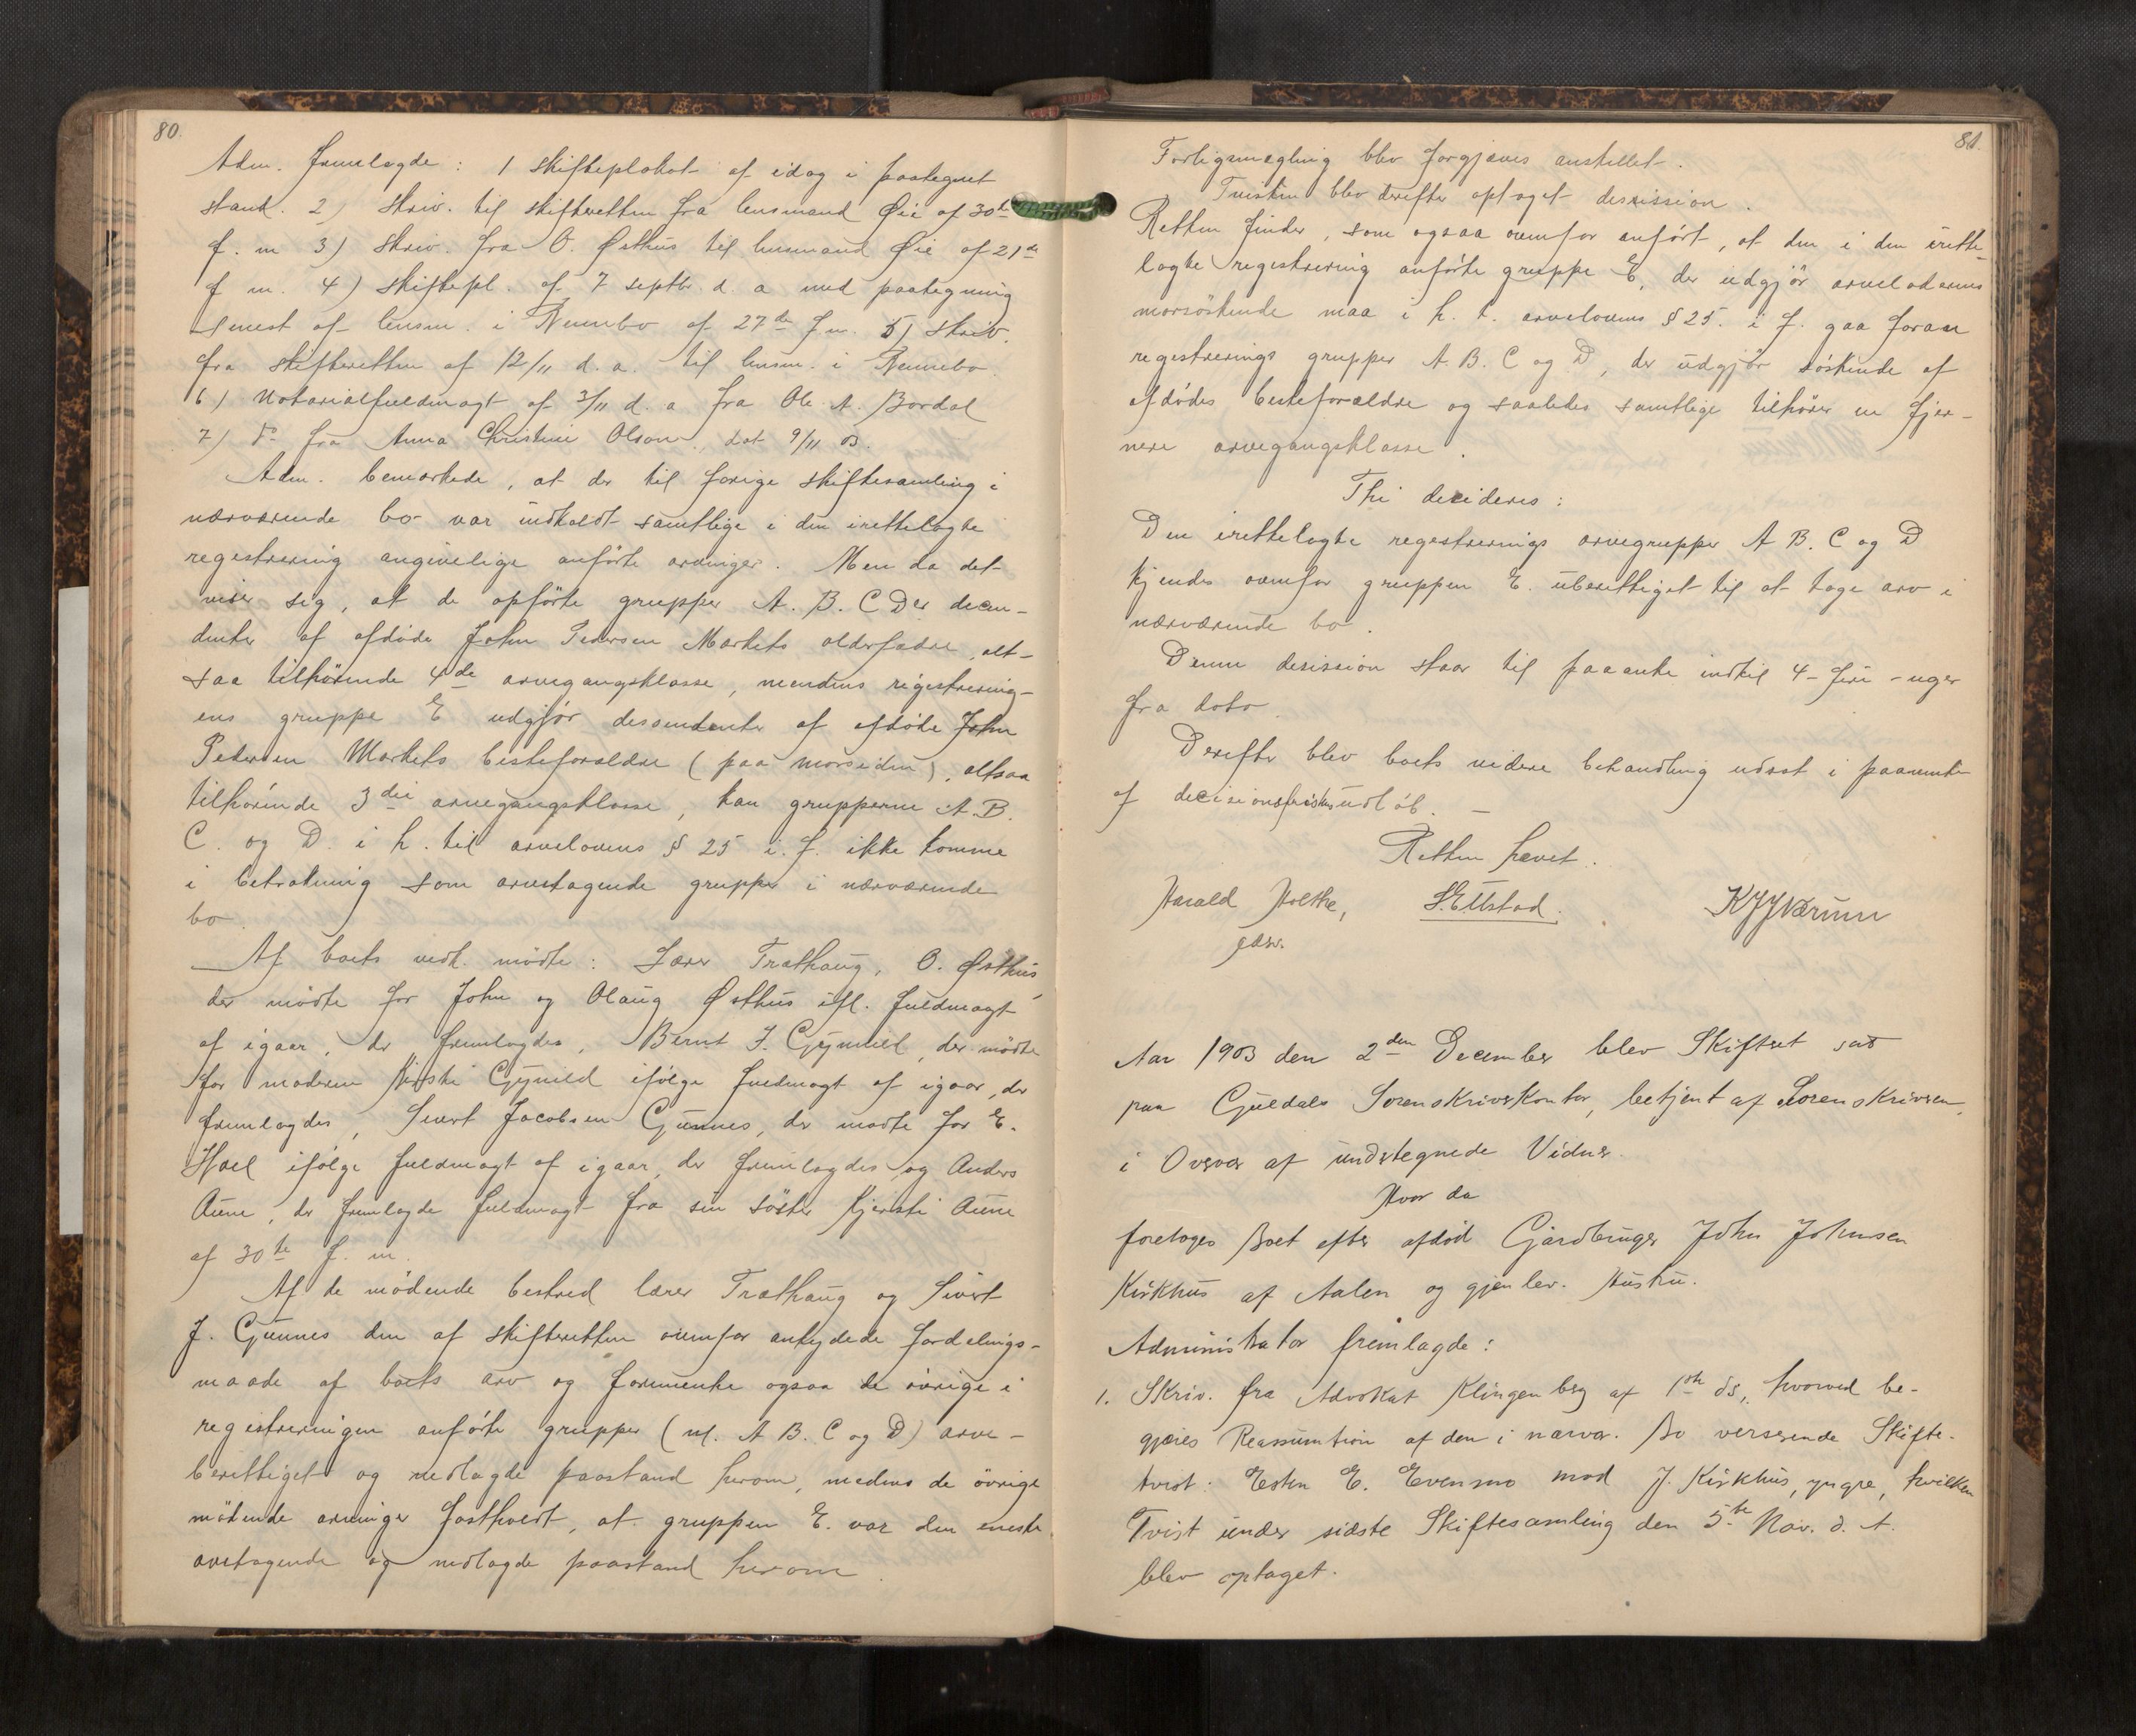 80.
Adm. fremlagde: 1 skifteplakat af idag i paategnet
stand. 2) skriv. til skifteretten fra lensmand Øie af 30te
f. m 3) skriv. fra O. Østhus til lensmand Øie af 21de
f m. 4) skiftepl. af 7 septbr. d. a med paategning
senest af lensm. i Nannebo af 27de f. m. 5) skriv.
fra skifteretten af 12/11 d. a. til lensm. i Nannebo.
6) Notarialfuldmagt af 3/11 d. a fra Ole A. Bordal
7) do fra Anna Christine Olson, dat 9/11 03.
Adm. bemærkede, at der til forige skiftesamling i
nærværende bo var indkaldt samtlige i den irettelagte
registrering angivelige anförte arvinger. Men da det
viser sig, at de opförte grupper A. B. C D er decen-
denter af afdöde John Pedersen Markets oldefædre, alt-
saa tilhörende 4de arvegangsklasse, mendens registrering-
ens gruppe E udgjör descendenter af afdöde John
Pedersen Markets besteforældre (paa morsiden), altsaa
tilhörende 3die arvegangsklasse, kan grupperne A. B.
C. og D. i h. til arvelovens § 25 i. f. ikke komme
i betratning som arvetagende grupper i nærværende
bo.
Af boets vedk. mödte: Lærer Træthaug, O. Østhus,
der mödte for John og Olaug Østhus ifl. fuldmagt
af igaar, der fremlagdes, Bernt J. Gynild, der mödte
for moderen Kirsti Gynild ifölge fuldmagt af igaar, der
fremlagdes, Sivert Jacobsen Gunnes, der mødte for E.
Hoel ifölge fuldmagt af igaar, der fremlagdes og Anders
Aune, der fremlagde fuldmagt fra sin söster Kjersti Aune
af 30te f. m.
Af de mödende bestred lærer Træthaug og Sivert
J. Gunnes den af skifteretten ovenfor antydede fordelings-
maade af boets arv og formente ogsaa de övrige i
registreringen anförte grupper (nl. A B. C og D) arve-
berettiget og nedlagde paastand herom, medens de övrige
mödende arvinger fastholdt, at gruppen E. var den eneste
arvetagende og nedlagde paastand herom.
81.
Forligsmægling blev forgjæves anstillet.
Tvisten blev derefter optaget desission.
Retten finder, som ogsaa ovenfor anfört, at den i den irette-
lagte registrering anförte gruppe E, der udgjör arveladerens
morsöskende maa i h. t. arvelovens § 25. i f. gaa foran
registrerings grupper A. B. C og D, der udgjör söskende af
afdödes besteforældre og saaledes samtlige tilhörer en fjer-
nere arvegangsklasse.
Thi decideres:
Den irettelagte registrerings arvegrupper A B. C og D
kjendes ovenfor gruppen E. uberettiget til at tage arv i
nærværende bo.
Denne desission staar til paaanke indtil 4 - fire - uger
fra dato.
Derefter blev boets videre behandling udsat i paavente
af decisionsfristens udlöb. —
Retten hævet.
Harald Holthe, S. Ellstad. K J J Bruun
gdsv.
Aar 1903 den 2den December blev Skifteret sat
paa Guldals Sorenskriverkontor, betjent af Sorenskriveren,
i Overvær af undertegnede Vidner.
Hvor da
foretoges Boet efter afdöd Gaardbruger John Johnsen
Kirkhus af Aalen og gjenlev. Hustru.
Administrator fremlagde:
1. Skriv. fra Advokat Klingenberg af 1ste ds., hvorved be-
gjæres Reassumtion af den i nærvær. Bo verserende Skifte-
tvist: Esten E. Evensmo mod J. Kirkhus, yngre, hvilken
Tvist under sidste Skiftesamling den 5te Nov. d. A.
blev optaget.